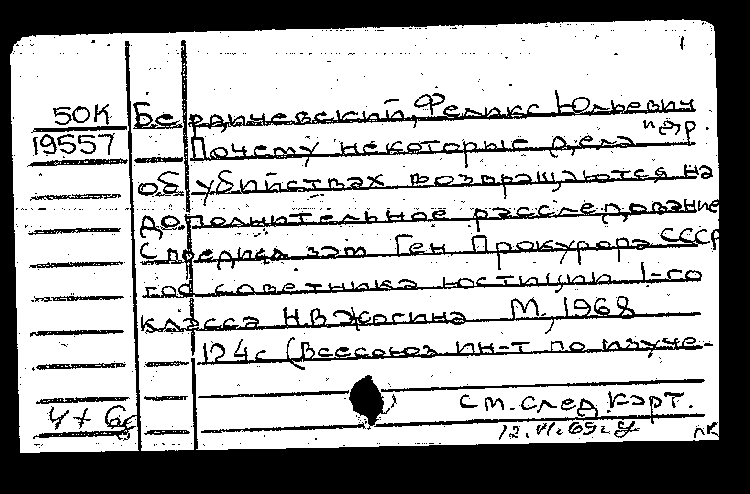 1
50К Бердичевский, Феликс Юльевич
19557 Почему некоторые дела
об убийствах возвращаются на
дополнительное расследование
С предисл зам Ген Прокурора СССР
гос советника юстиции 1-го
класса Н.В Жогина М, 1968
124с (Всесоюз ин-т по изуче-
см. след. карт.